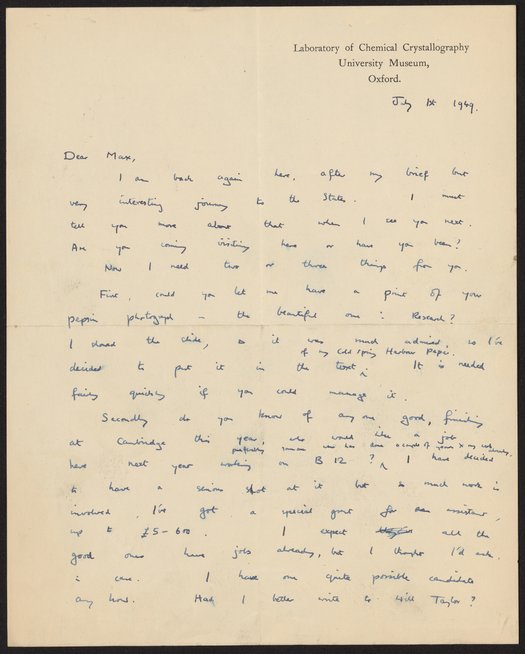 Laboratory of Chemical Crystallography
University Museum,
Oxford.
July 1st 1949.
Dear Max,
I am back again here, after my brief but
very interesting journey to the States. I must
tell you more about that when I see you next.
Are you coming visiting here or have you been?
Now I need two or three things from you.
First, could you let me have a print of your
pepsin photograph - the beautiful one: Research?
I showed the slide, & it was much admired, so I've
of my Cold Spring Harbour paper.
decided to put it in the text ^. It is needed
fairly quickly if you could manage it.
Secondly do you know of any one good, finishing
at Cambridge this year, who would like a job
preferably someone who has done a couple of years X ray work already,
here next year working on B 12 ? ^ I have decided
to have a serious shot at it but so much work is
involved, I've got a special grant for an assistant,
up to £5-600. I expect all the
good ones have jobs already, but I thought I'd ask.
in case. I have one quite possible candidate
any how. Had I better write to Will Taylor?